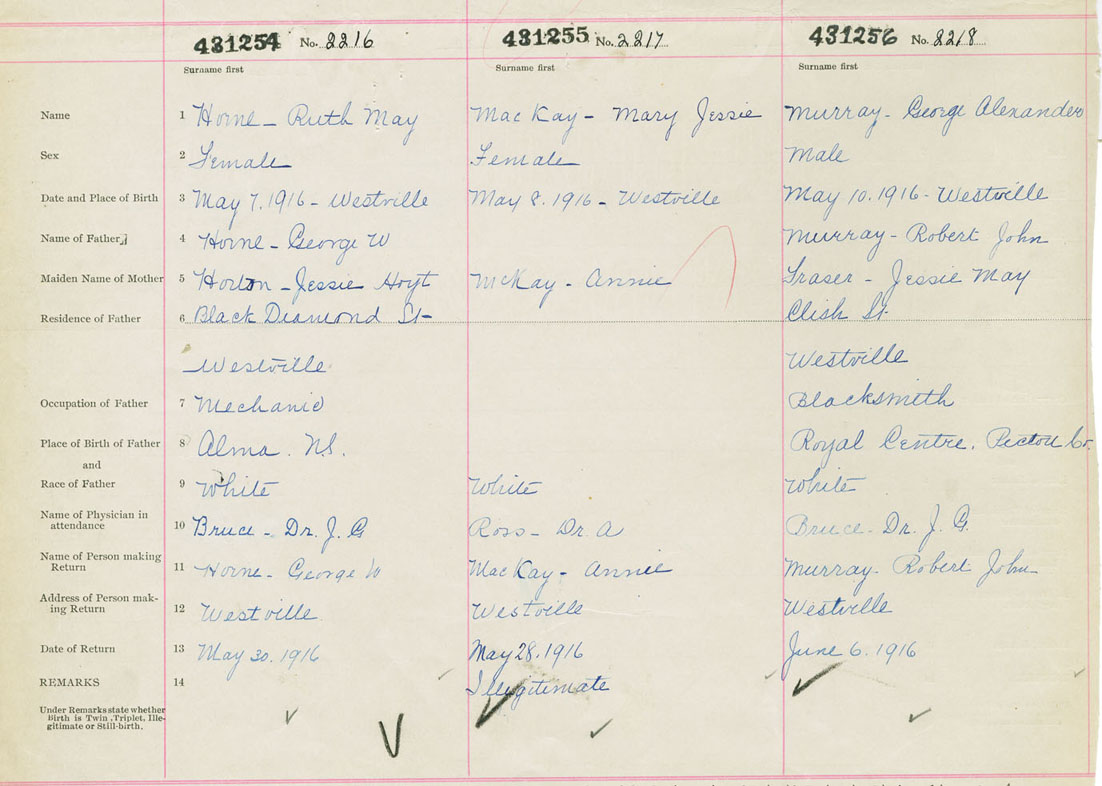 431254 No. 2216 431255 No. 2217 431256 No. 2218
Surname first Surname first Surname first
Name 1 Horne - Ruth May MacKay - Mary Jessie Murray - George Alexander
Sex 2 Female Female Male
Date and Place of Birth 3 May 7. 1916 - Westville May 8. 1916 - Westville May 10. 1916 - Westville
Name of Father 4 Horne - George W Murray - Robert John
Maiden Name of Mother 5 Horton - Jessie Hoyt McKay - Annie Fraser - Jessie May
Residence of Father 6 Black Diamond St Clish St.
Westville Westville
Occupation of Father 7 Mechanic Blacksmith
Place of Birth of Father 8 Alma. N.S. Royal Centre. Pictou Co.
and
Race of Father 9 White White White
Name of Physician in
attendance 10 Bruce - Dr. J. G Ross - Dr. A Bruce - Dr. J. G.
Name of Person making
Return 11 Horne - George W MacKay - Annie Murray - Robert John
Address of Person mak-
ing Return 12 Westville Westville Westville
Date of Return 13 May 30. 1916 May 28. 1916 June 6. 1916
REMARKS 14 Illegitimate
Under Remarks state whether
Birth is Twin, Triplet, Ille-
gitimate or Still-birth.